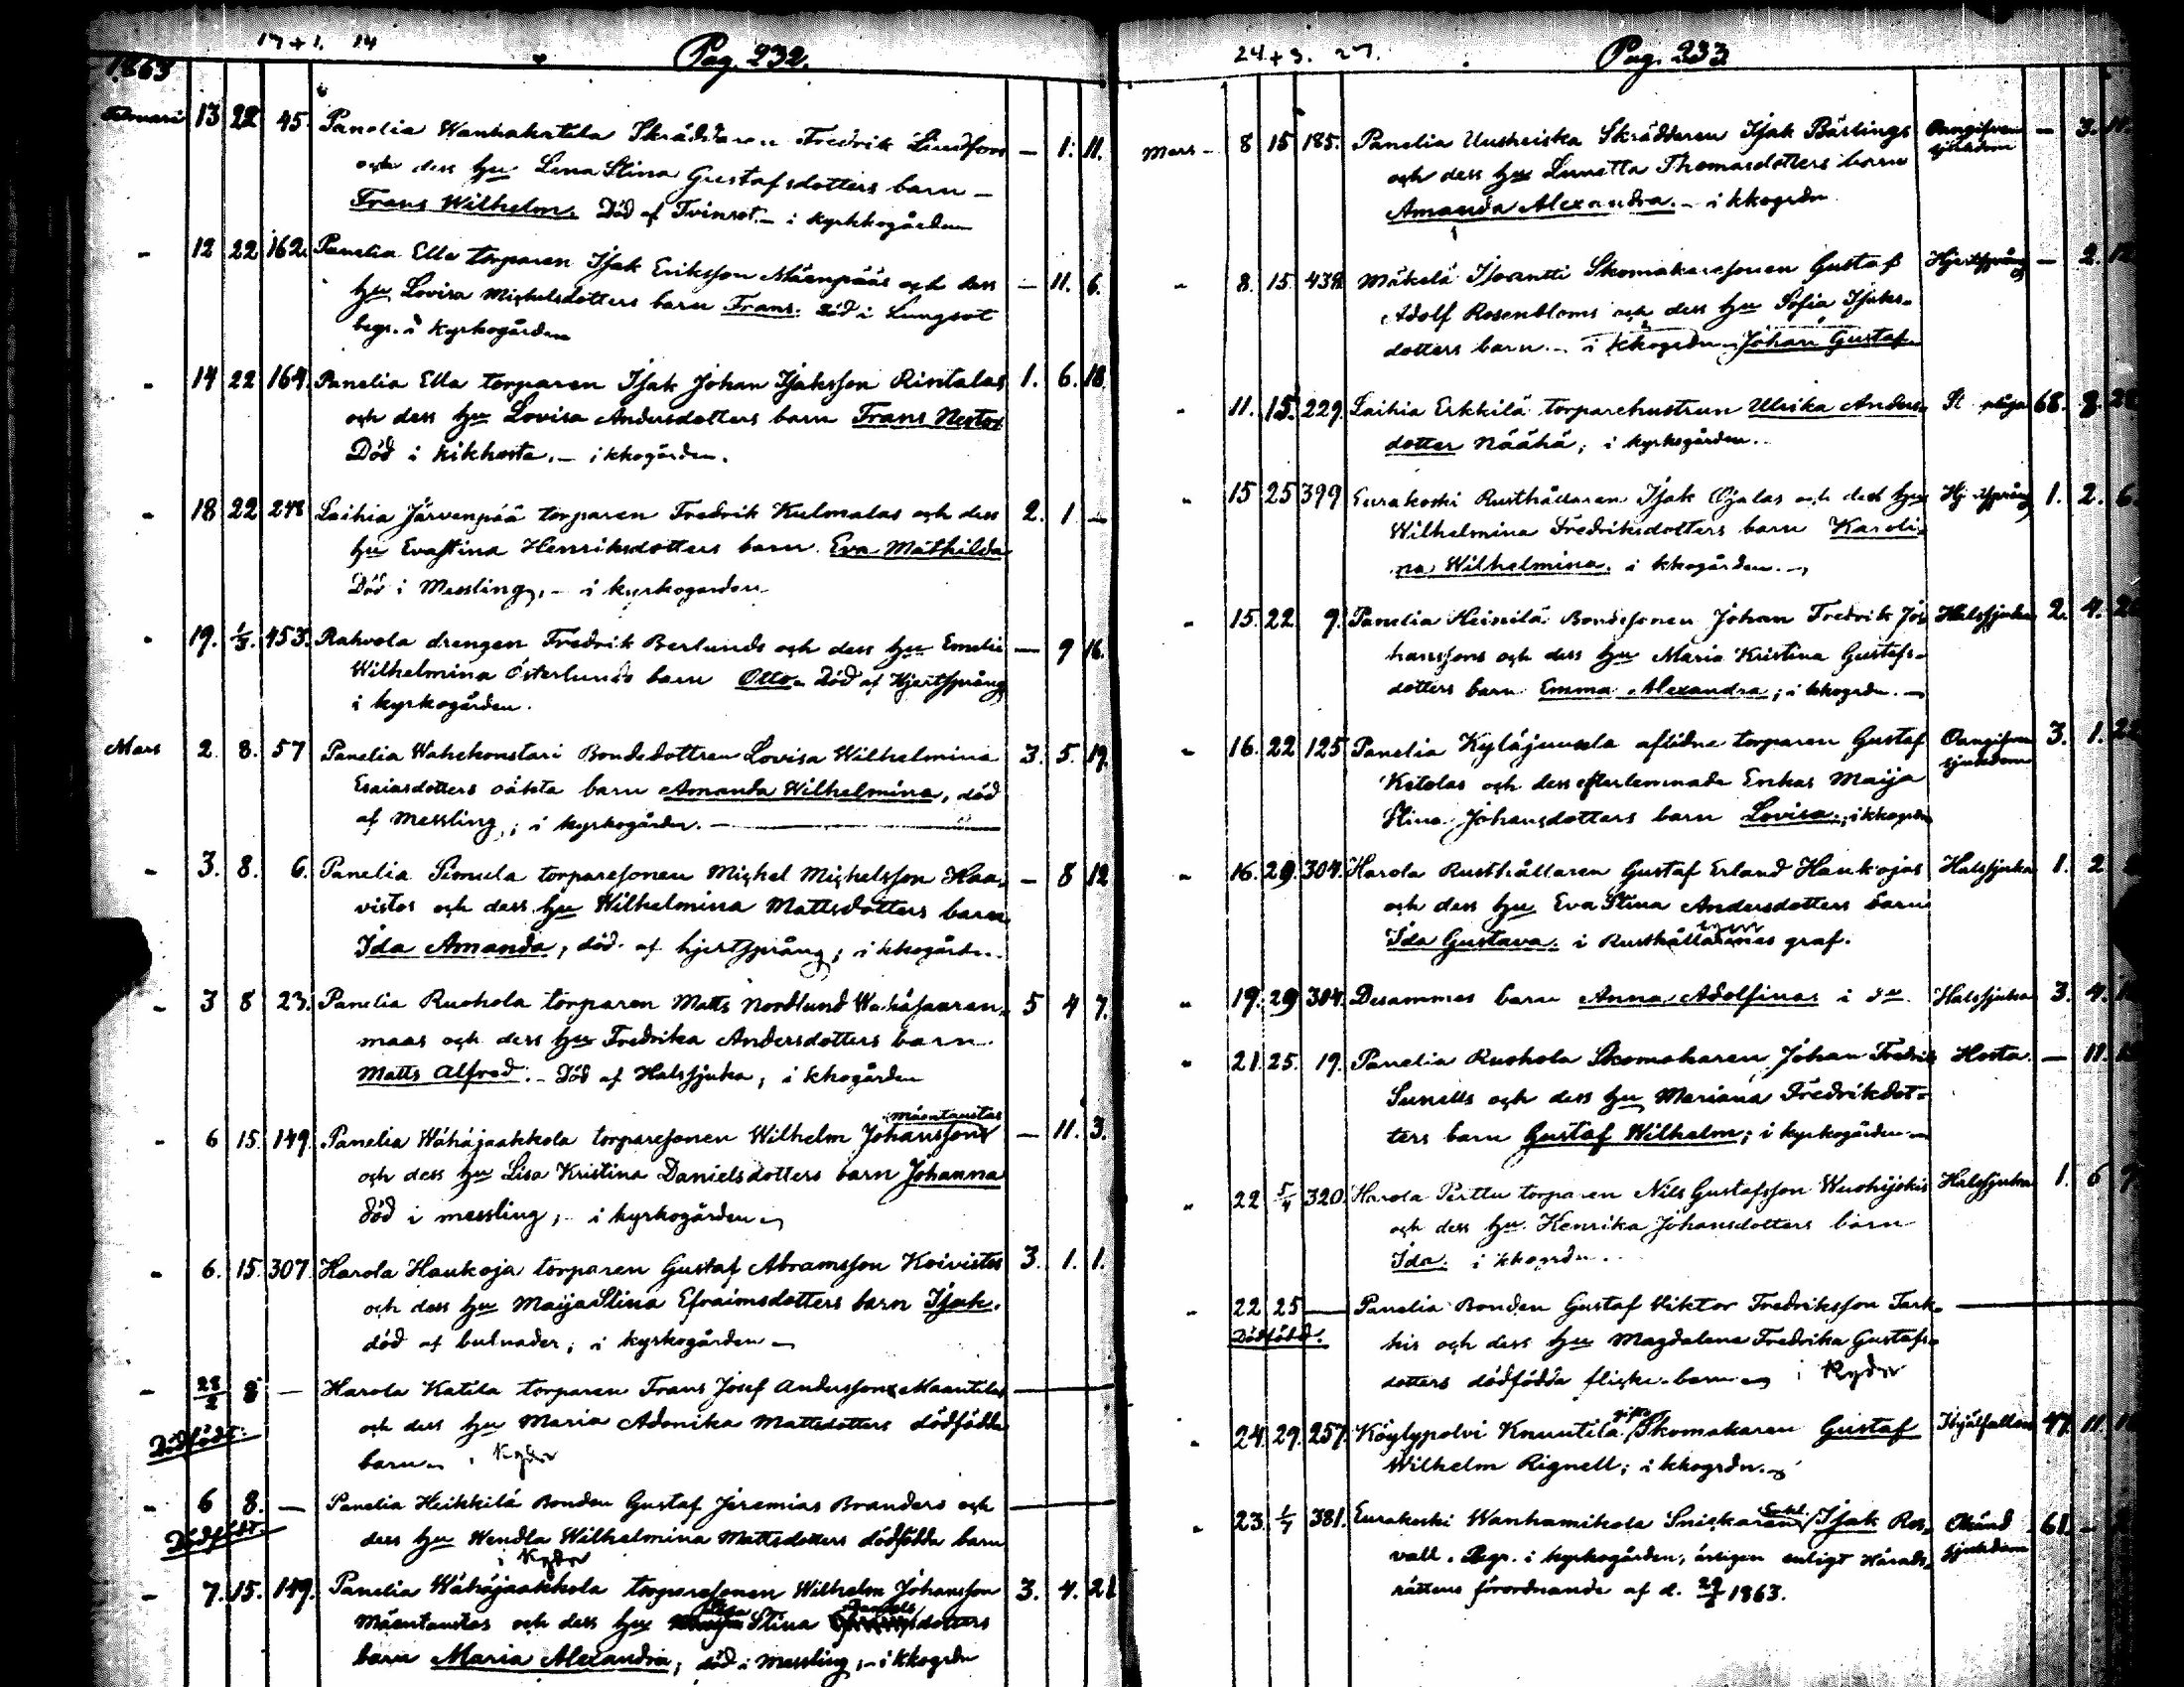 17+1. 14
Pag. 232.
1863
Februari 13 22 45. Panelia Wanhakartila Skräddaren Fredrik Lindfors — 1. 11.
och dess hu Lena Stina Gustafsdotters barn –
Frans Wilhelm. Död af Tvinsot. – i kyrkkogården
- 12 22 162. Panelia Ella torparen Isak Eriksson Mäenpääs och dess — 11. 6.
hu Lovisa Michelsdotters barn Frans. död i Lungsot
begr. i kyrkogården
- 14 22 164. Panelia Ella torparen Isak Johan Isaksson Rintalas 1. 6. 18.
och dess hu Lovisa Andersdotters barn Frans Nestor
Död i kikhosta. – i kkogården.
- 18 22 248 Laihia Järvenpää torparen Fredrik Kulmalas och dess 2. 1 –
hu Evastina Henriksdotters barn Eva Mathilda
Död i Messling, – i kyrkogården
- 19. 1/3. 453. Rahvola drengen Fredrik Berlunds och dess hu Emelie — 9 16.
Wilhelmina Österlunds barn Otto. Död af Hjertsprång
i kyrkogården.
Mars 2. 8. 57 Panelia Wahekonstari Bondedottren Lovisa Wilhelmina 3. 5. 19.
Esaiasdotters oäkta barn Amanda Wilhelmina, död
af messling; i kyrkogården. —
- 3. 8. 6. Panelia Simula torparesonen Michel Michelsson Haa- — 8 12
vistos och dess hu Wilhelmina Mattsdotters barn
Ida Amanda, död af hjertsprång; i kkogården.
- 3 8 23. Panelia Ruohola torparen Matts Nordlund Wähäsaaren- 5 4 7.
maas och dess hu Fredrika Andersdotters barn
Matts Alfred. – Död af Halssjuka, i kkogården
Mäentaustas
- 6 15. 149. Panelia Wähäjaakkola torparesonen Wilhelm Johanssons — 11. 3.
och dess hu Lisa Kristina Danielsdotters barn Johanna
död i messling, – i kyrkogården
- 6. 15. 307. Harola Haukoja torparen Gustaf Abramsson Koivistos 3. 1. 1.
och dess hu Maija Stina Efraimsdotters barn Isak.
död af bulnader; i kyrkogården –
- 28/2 8 — Harola Katila torparen Frans Josef Anderssons Maantilas —
och dess hu Maria Adonika Mattsdotters dödfödda
Dödfödt.
barn. i Kgdn
- 6 8. — Panelia Heikkilä Bonden Gustaf Jeremias Branders och —
Dödfödt.
dess hu Wendla Wilhelmina Mattsdotters dödfödda barn
i Kgdn
- 7. 15. 149. Panelia Wähäjaakkola torparesonen Wilhelm Johansson 3. 4. 21
Mäentaustas och dess hu Lisa Stina Daniels dotters
barn Maria Alexandra; död i messling, – i kkogrdn
24+3. 27.
Pag. 233
Mars - 8 15 185. Panelia Uusheiska Skrädderen Isak Bärlings Oangifven sjukdom — 3. 11.
och dess hu Lunetta Thomasdotters barn
Amanda Alexandra. – i kkogrdn
- 8. 15. 439. Mäkelä Isoantti Skomakaresonen Gustaf Hjertsprång — 2.
Adolf Rosenbloms och dess hu Sofia Isaks-
dotters barn. – i kkogrdn. Johan Gustaf.
- 11. 15. 229. Laihia Erkkilä torparehustrun Ulrika Anders- 68. 8.
dotter Näähä; i kyrkogården.
- 15 25 399 Eurakoski Rusthållaren Isak Ojalas och dess hu Hjertsprång 1. 2. 6.
Wilhelmina Fredriksdotters barn Karoli-
na Wilhelmina. i kkogården. –
- 15. 22 9. Panelia Heinilä Bondesonen Johan Fredrik Jo- Halssjuka 2. 4.
hanssons och dess hu Maria Kristina Gustafs-
dotters barn Emma Alexandra; i kkogrdn. –
- 16. 22 125 Panelia Kyläjuusela aflidne torparen Gustaf Oangifven sjukdom 3. 1.
Ketolas och dess efterlemnade Enkas Maija
Stina Johansdotters barn Lovisa.; i kkogrdn
- 16. 29. 304. Harola Rusthållaren Gustaf Erland Haukojas Halssjuka 1. 2
och dess hu Eva Stina Andersdotters barn
Ida Gustava. i Rusthållarenes graf.
- 19. 29 304. Desammes barn Anna Adolfina. i do Halssjuka 3. 4.
- 21. 25. 19. Panelia Ruohola Skomakaren Johan Fredrik Hosta — 11.
Sunells och dess hu Mariana Fredriksdot-
ters barn Gustaf Wilhelm; i kyrkogården –
- 22 5/4 320. Harola Perttu torparen Nils Gustafsson Wuohijokis Halssjuka 1. 6
och dess hu Henrika Johansdotters barn
Ida. i kkogrdn.
- 22 25 — Panelia Bonden Gustaf Viktor Fredriksson Tark- —
Dödfödd.
his och dess hu Magdalena Fredrika Gustafs-
dotters dödfödda flicke-barn. i Kgdn
- 24. 29. 257. Köylypolvi Knuutila gifte Skomakaren Gustaf Ihjälfallen 47. 11.
Wilhelm Rignell; i kkogrdn. –
- 23. 1/7 381. Eurakoski Wanhamikola Snickaren Enkl. Isak Ros- Okänd sjukdom 61. –
vall. Begr. i kyrkogården, ärligen enligt Härads-
rättens förordnande af d. 29/6 1863.